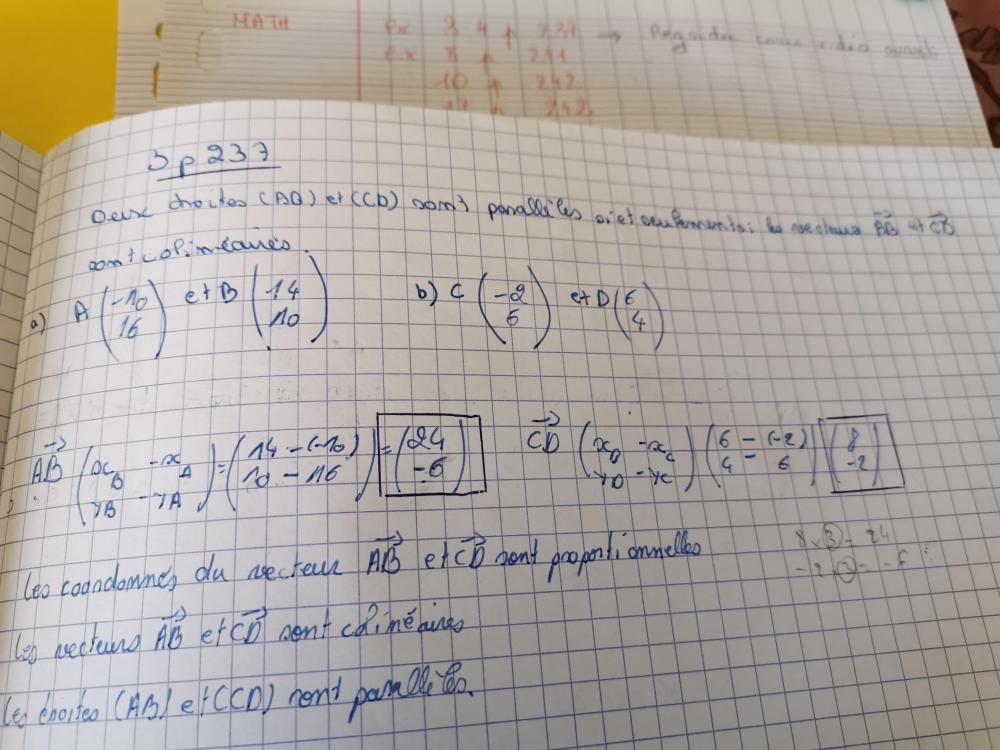 MATH
ex 3 4 p 237 → Regarder avant
ex 8 p 241
10 p 242
p 242
3 p 237
Deux droites (AB) et (CD) sont parallèles si et seulement si les vecteurs AB et CD
sont colinéaires.
a) A (-10 16) et B (14 10) b) C (-2 6) et D (6 4)
AB (xB - xA yB - yA) = (14 - (-10) 10 - 16) = (24 -6) CD (xD - xC yD - yC) (6 - (-2) 4 - 6) (8 -2)
8 x 3 = 24
-2 x 3 = -6
Les coordonnés du vecteur AB et CD sont proportionnelles
Les vecteurs AB et CD sont colinéaires
Les droites (AB) et (CD) sont parallèles.